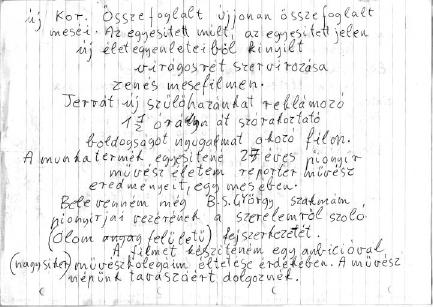 új Kor. Összefoglalt újjonan összefoglalt
meséi. Az egyesített múlt, az egyesített jelen
új életegyenleteiből kinyílt
virágosrét szervírozása
zenés mesefilmen.
Terrát új szülőhazánkat reklámozó
1 1/2 órán át szórakoztató
boldogságot nyugalmat okozó film.
A munkatermék egyesítené 27 éves pionyír
művész életem reporter művész
eredményeit, egy mesében.
Belevenném még B.S. György, szakmám
pionyírjai vezérének a szerelemről szóló
(Ólom anyag felületű) fejszerkezetét.
A filmet készíteném egy ambícióval
(nagysiker) művészkollégáim éltetése érdekében. A művész
népünk tavaszáért dolgoznék.